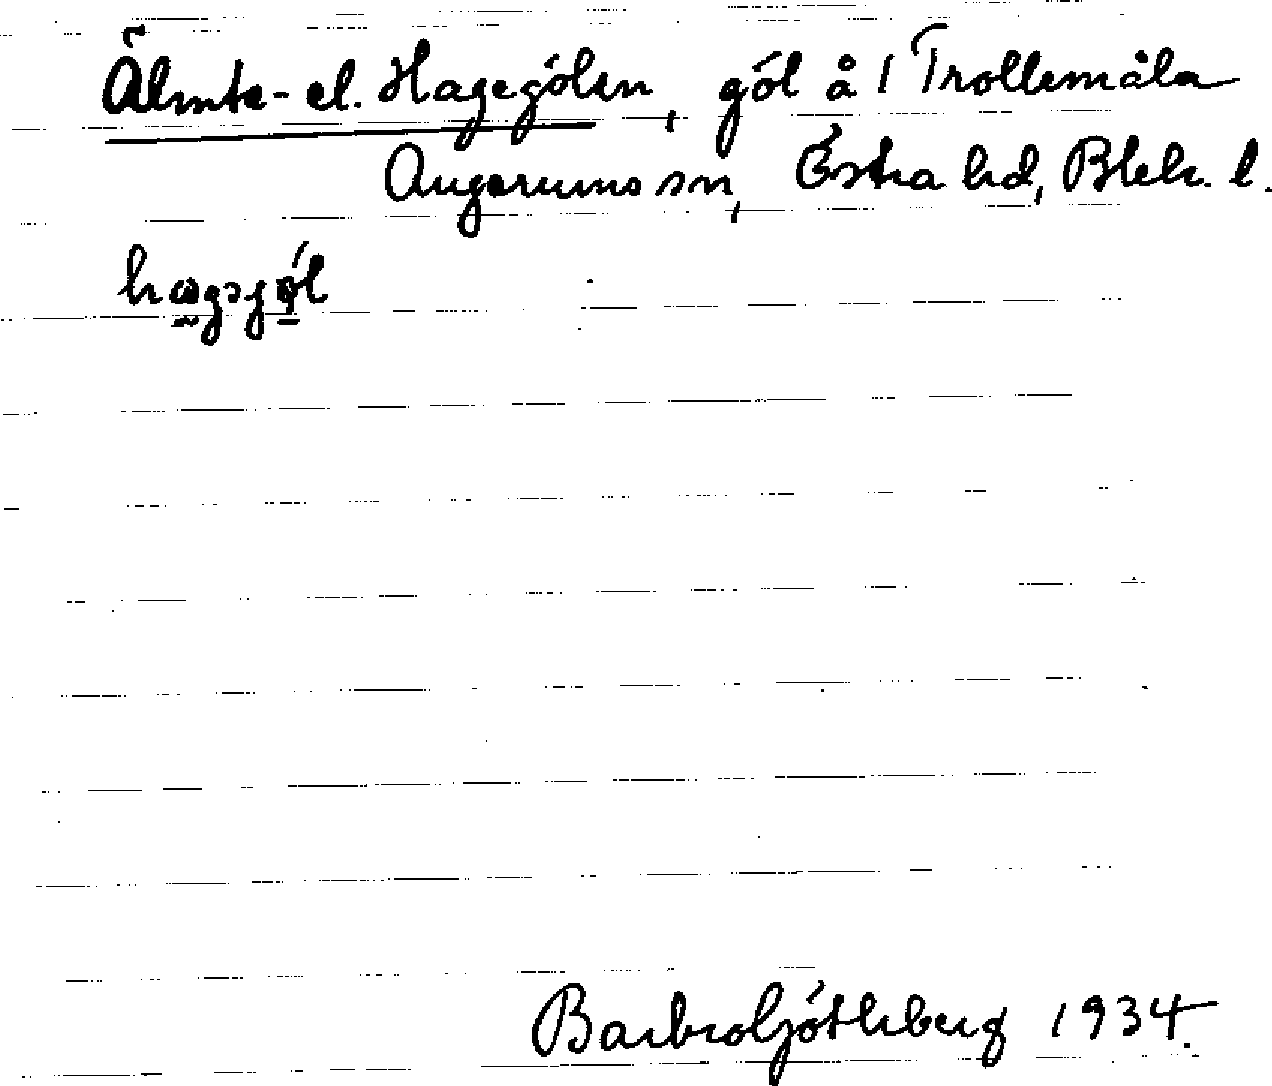 Älmte- el. Hagegölen, göl å 1 Trollemåla
Augerums sn, Östra hd, Blek. l.
Barbro Götheberg 1934.